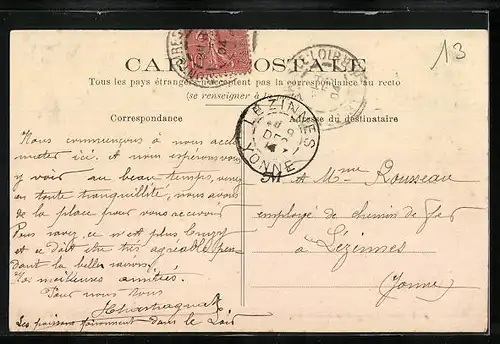 13
CARTE POSTALE
Tous les pays étrangers n'acceptent pas la correspondance au recto
(se renseigner à la
Correspondance
Adresse du destinataire
LEZINNES
9
DEC
YONNE
Nous commençons à nous accli
mater ici. A nous espérons vous
y voir au beau temps, venez
en toute tranquillité, nous avons
de la place pour vous recevoir
Pour Paris, ce n'est plus
et ce doit être très agréable pen
dant la belle saison.
Nos meilleures amitiés.
Pour nous tous
Les poissons foisonnent dans le Loir
M
A Mme Rousseau
employé de chemin de fer
à Lézinnes
(Yonne)